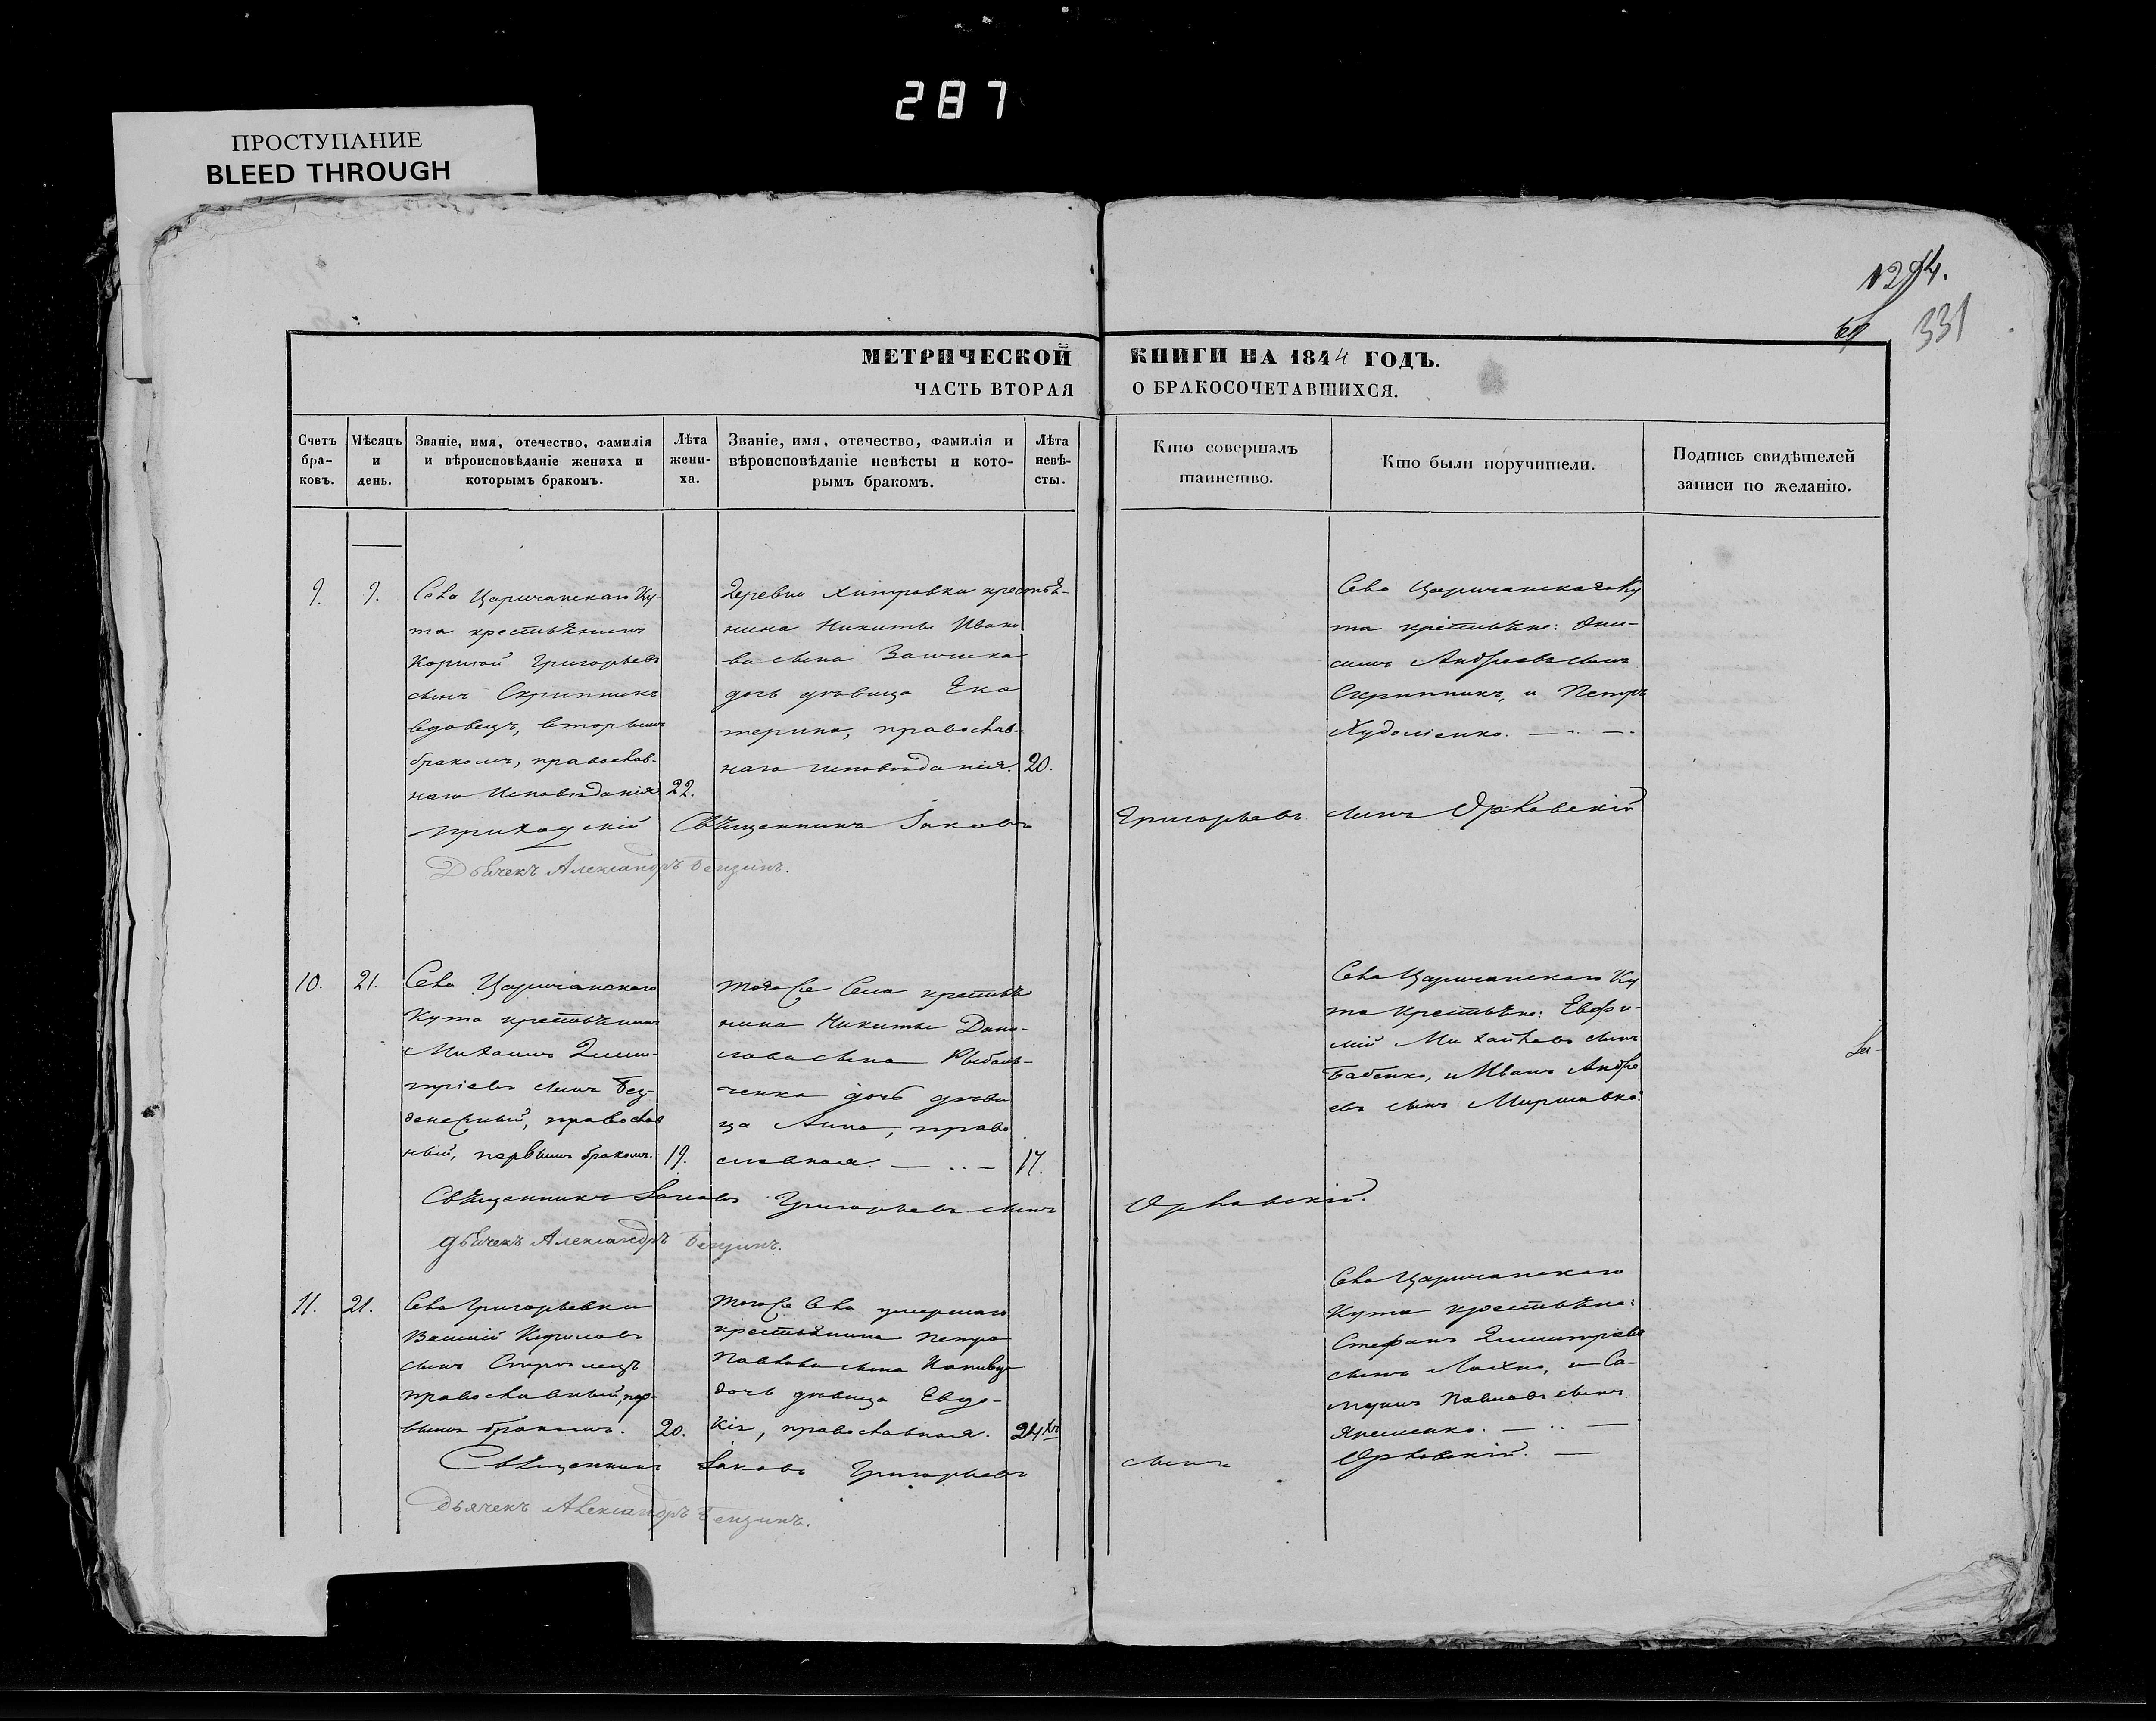 287
ПРОСТУПАНИЕ
BLEED THROUGH
1294.
331
МЕТРИЧЕСКОЙ КНИГИ НА 1844 ГОДЪ.
ЧАСТЬ ВТОРАЯ О БРАКОСОЧЕТАВШИХСЯ.
Счетъ браковъ.
Мѣсяцъ и день.
Званіе, имя, отечество, фамилія
и вѣроисповѣданіе жениха и
которымъ бракомъ.
Лѣта жениха.
Званіе, имя, отечество, фамилія и
вѣроисповѣданіе невѣсты и кото-
рымъ бракомъ.
Лѣта невѣсты.
Кто совершалъ
таинство.
Кто были поручители.
Подпись свидѣтелей
записи по желанію.
9. 9.
Села Царичанскаго Ку-
та крестьянинъ
Григорьевъ
сынъ Скрипникъ
вдовецъ, вторымъ
бракомъ, православ-
наго исповѣданія 22.
Деревни крестья-
нина Никиты Ивано
ва сына
дочь дѣвица Ека
терина, православ-
наго исповѣданія. 20.
Села Царичанскаго Ку
та крестьяне: Они-
симъ Андреевъ сынъ
Скрипникъ, и Петръ
Худоліенко.
Приходскій Священникъ Іаковъ Григорьевъ сынъ Орловскій
Дьячекъ Александръ Бензинъ.
10. 21.
Села Царичанскаго
Кута крестьянинъ
Михаилъ Дими-
тріевъ сынъ Без
денежный, православ
ный, первымъ бракомъ. 19.
Тогоже Села крестья
нина Никиты Дани-
лова сына Рыбаль-
ченка дочь дѣви
ца Анна, право
славная. 17.
Села Царичанскаго Ку
та Крестьяне: Евфи-
мій Михайловъ сынъ
Бабенко, и Иванъ Андре
евъ сынъ Миршавка
Священникъ Іаковъ Григорьевъ сынъ Орловскій.
дьячекъ Александръ Бензинъ.
11. 21.
Села Григорьевки
Василій Кириловъ
сынъ
православный, пер-
вымъ бракомъ. 20.
Тогоже Села умершаго
крестьянина Петра
Павлова сына
дочь дѣвица Евдо-
кія, православная.
Села Царичанскаго
Кута крестьяне:
Стефанъ Димитріевъ
сынъ Лахно, и Са-
муилъ Павловъ сынъ
Яременко.
Священникъ Іаковъ Григорьевъ сынъ Орловскій.
Дьячекъ Александръ Бензинъ.